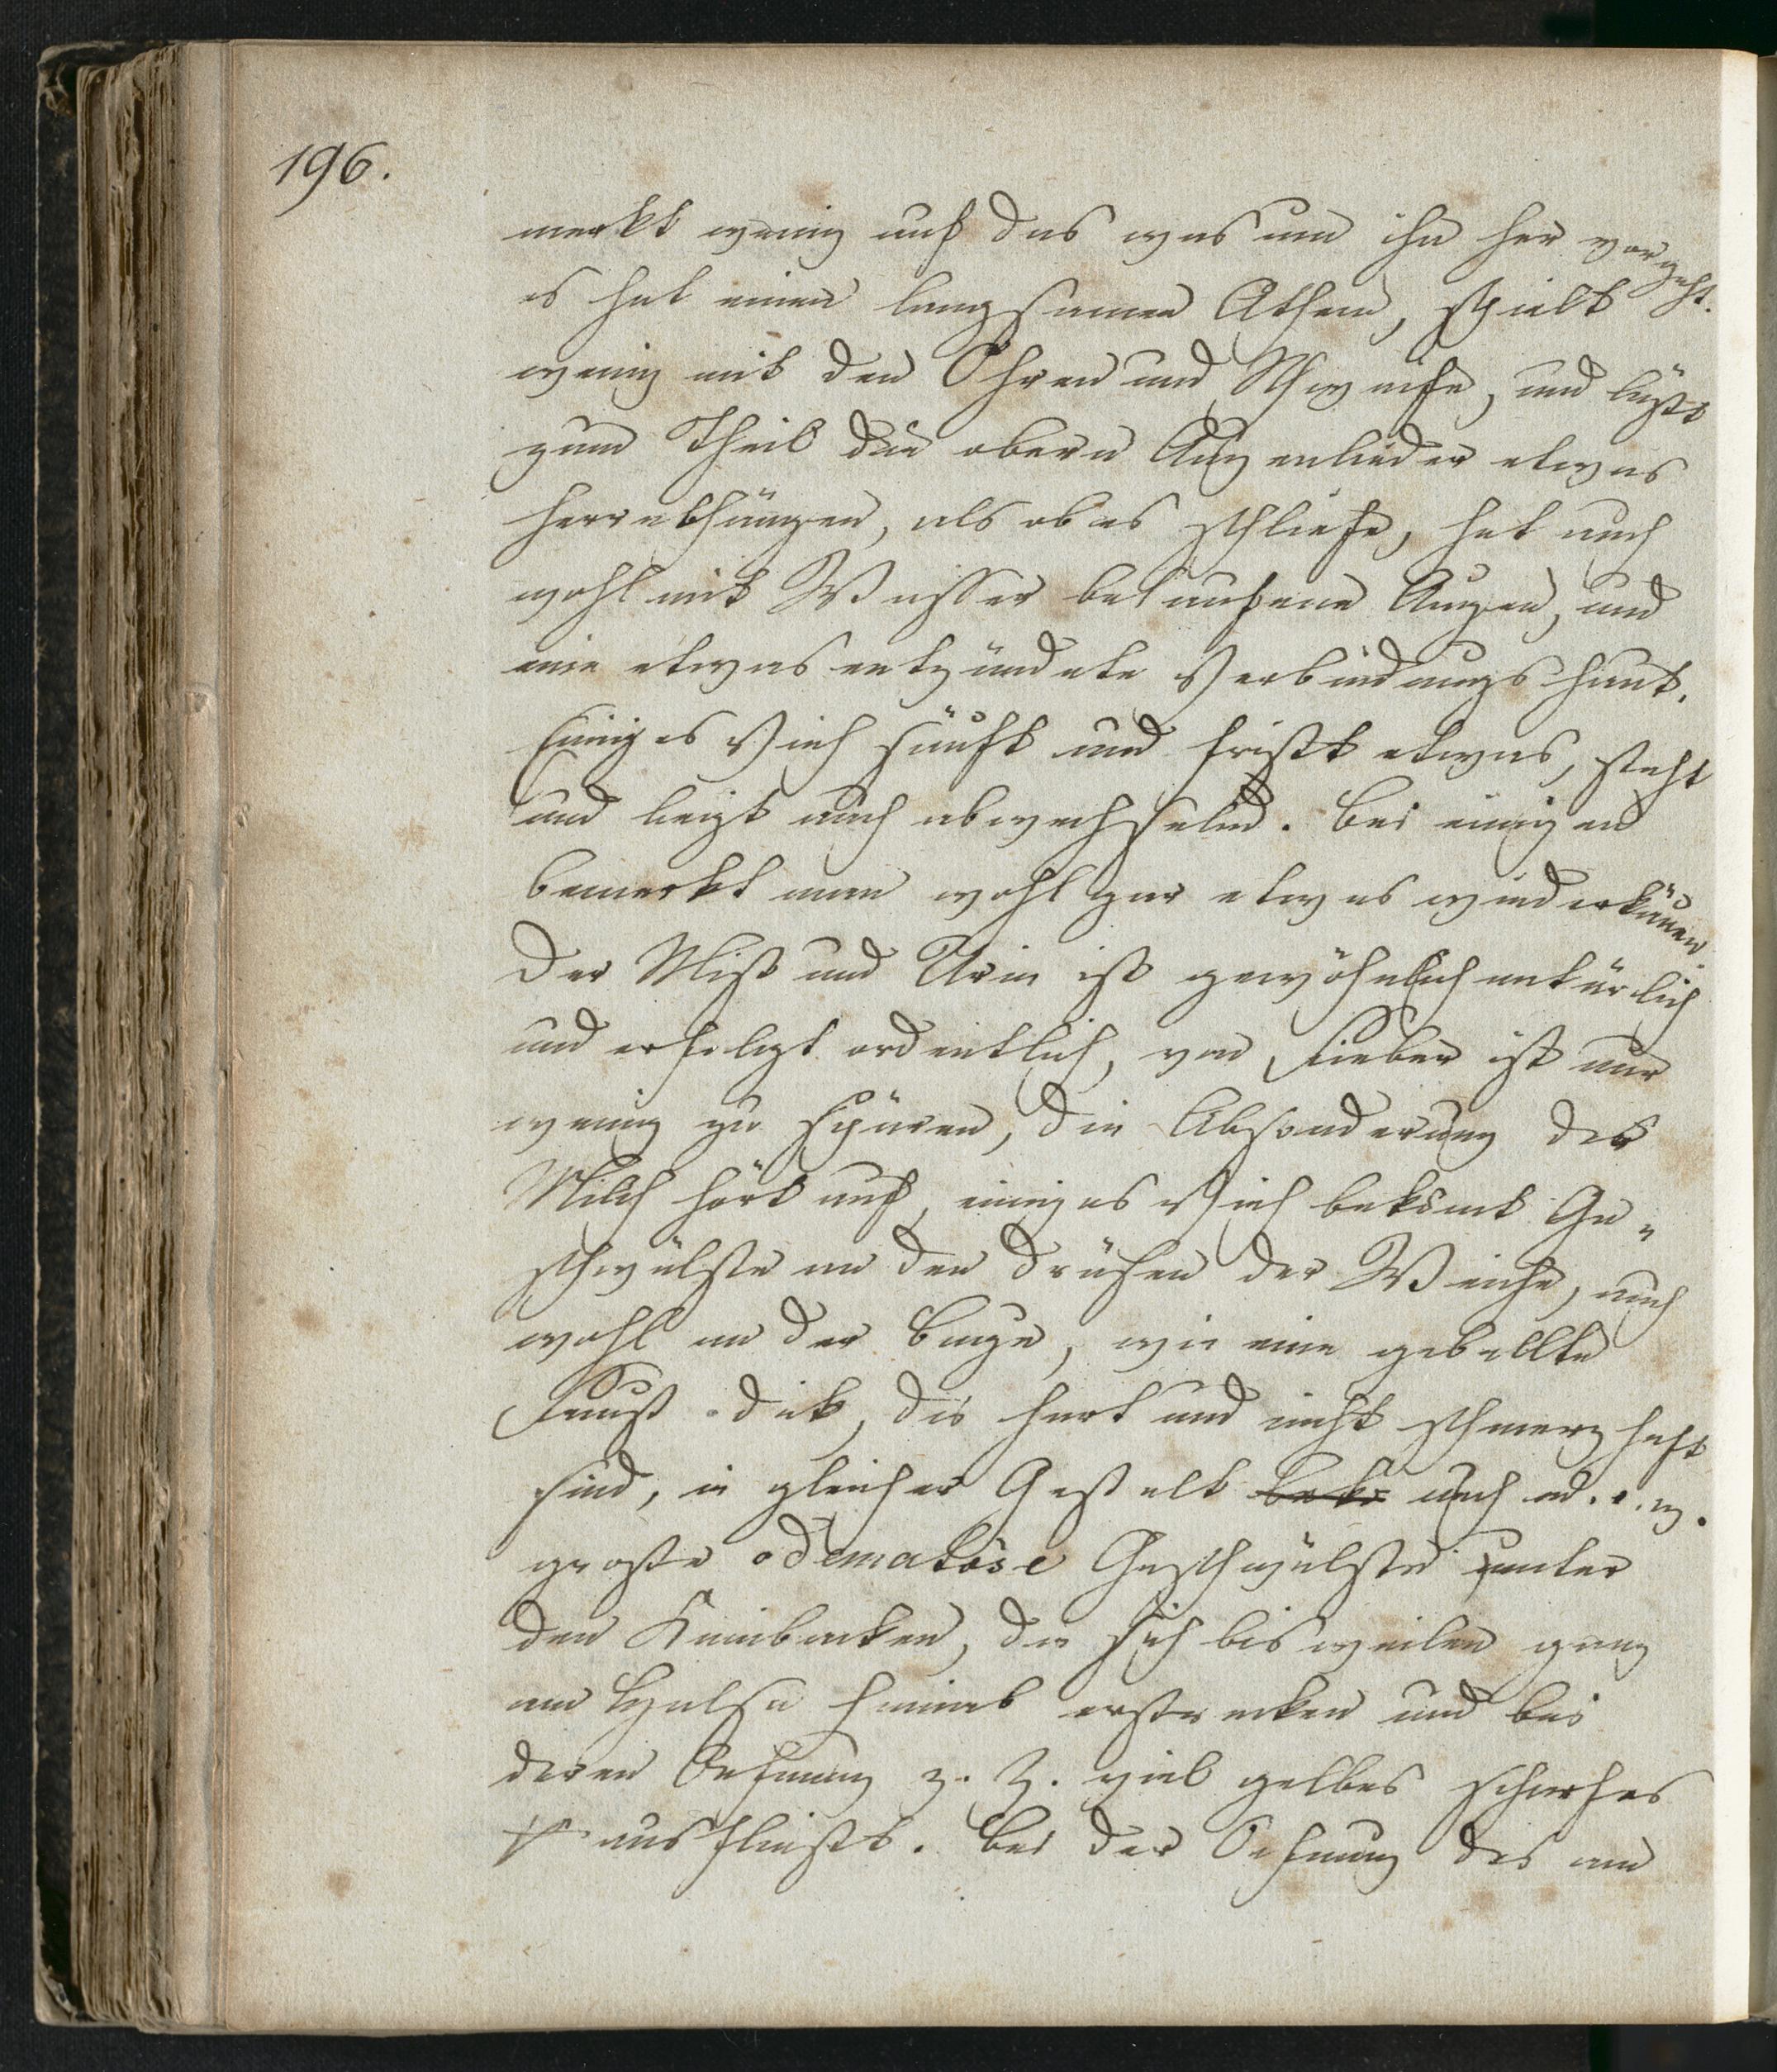 196.
merkt wenig auf das was um ihn her vorgeht.
es hat einen langsamen Athem, spielt
wenig mit den Ohren und Schweife, und läßt
zum Theil die obern Augenlieder etwas
herrabhängen, als ob es schliefe, hat auch
wohl mit Wasser belaufene Augen, und
eine etwas entzündete Verbindungshaut.
Einiges Vieh säuft und frißt etwas, steht
und liegt auch abwechselnd. Bei einigen
bemerkt man wohl gar etwas wiederkäuen.
Der Mist und Urin ist gewöhnlich natürlich
und erfolgt ordentlich, von Fieber ist nur
wenig zu spüren, die Absonderung der
Milch hört auf, einiges Vieh bekömt Ge„
schwülste an den Drüsen der Weiche, auch
wohl an der Buge, wie eine geballte
Faust dick, die hart und nicht schmerzhaft
sind, in gleicher Gestalt auch
große ödematöse Geschwülste unter
den Kinbacken, die sich bisweilen ganz
am Halse hinab erstrecken und bei
deren Oefnung z. Z. viel gelbes scharfes
ausfließt. Bei der Oefnung des am